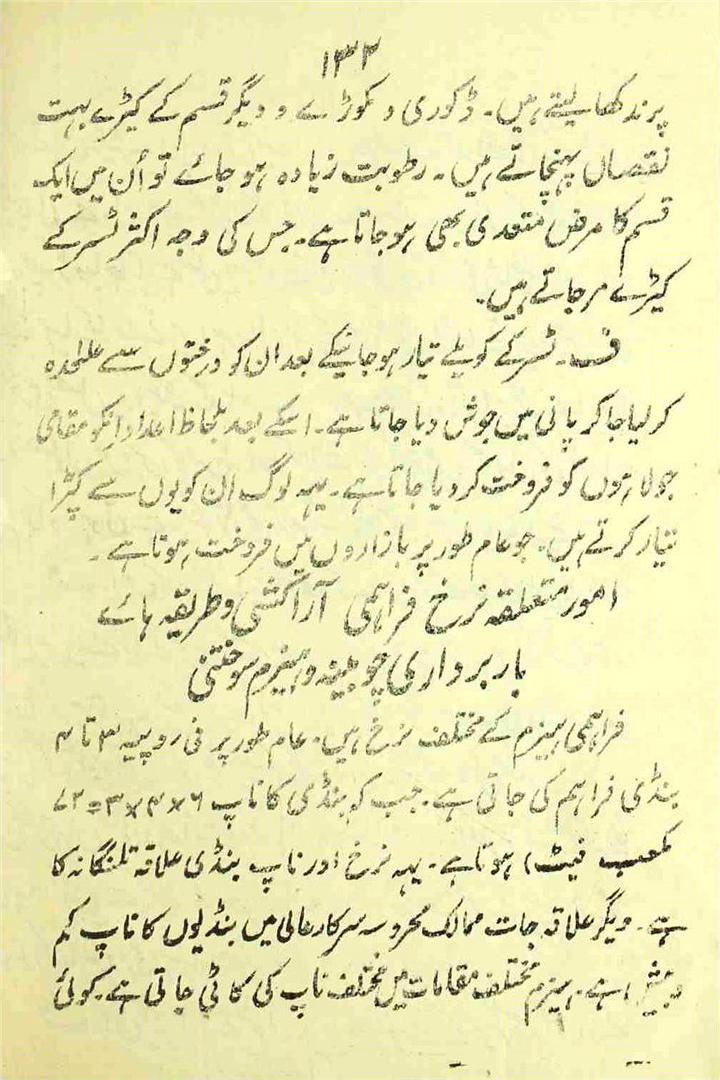 ۱۳۲
پرند کھا لیتے ہیں۔ ڈکوری و مکوڑے و دیگر قسم کے کیڑے بہت
نقصان پہنچاتے ہیں۔ رطوبت زیادہ ہو جائے تو اُن میں ایک
قسم کا مرض متعدی بھی ہو جاتا ہے۔ جس کی وجہ اکثر ٹسر کے
کیڑے مر جاتے ہیں۔
ف۔ ٹسر کے کویے تیار ہو جانیکے بعد ان کو درختوں سے علٰحدہ
کر لیا جا کر پانی میں جوش دیا جاتا ہے۔ اسکے بعد بلحاظ اعداد انکو مقامی
جولاہوں کو فروخت کر دیا جاتا ہے۔ یہہ لوگ ان کویوں سے کپڑا
تیار کرتے ہیں۔ جو عام طور پر بازاروں میں فروخت ہوتا ہے۔
امور متعلقہ نرخ فراہمی آراکشی و طریقہ ہائے
بار برداری چوبینہ و ہیزم سوختنی
فراہمی ہیزم کے مختلف نرخ ہیں۔ عام طور پر فی روپیہ ۳ تا ۴
بنڈی فراہم کی جاتی ہے۔ جب کہ بنڈی کا ناپ ۶×۴×۳=۷۲
مکعب فیٹ) ہوتا ہے۔ یہہ نرخ اور ناپ بنڈی علاقہ تلنگانہ کا
ہے۔ دیگر علاقہ جات ممالک محروسہ سرکار عالی میں بنڈیوں کا ناپ کم
و بیش ہے۔ ہیزم مختلف مقامات میں مختلف ناپ کی کاٹی جاتی ہے۔ کوئی